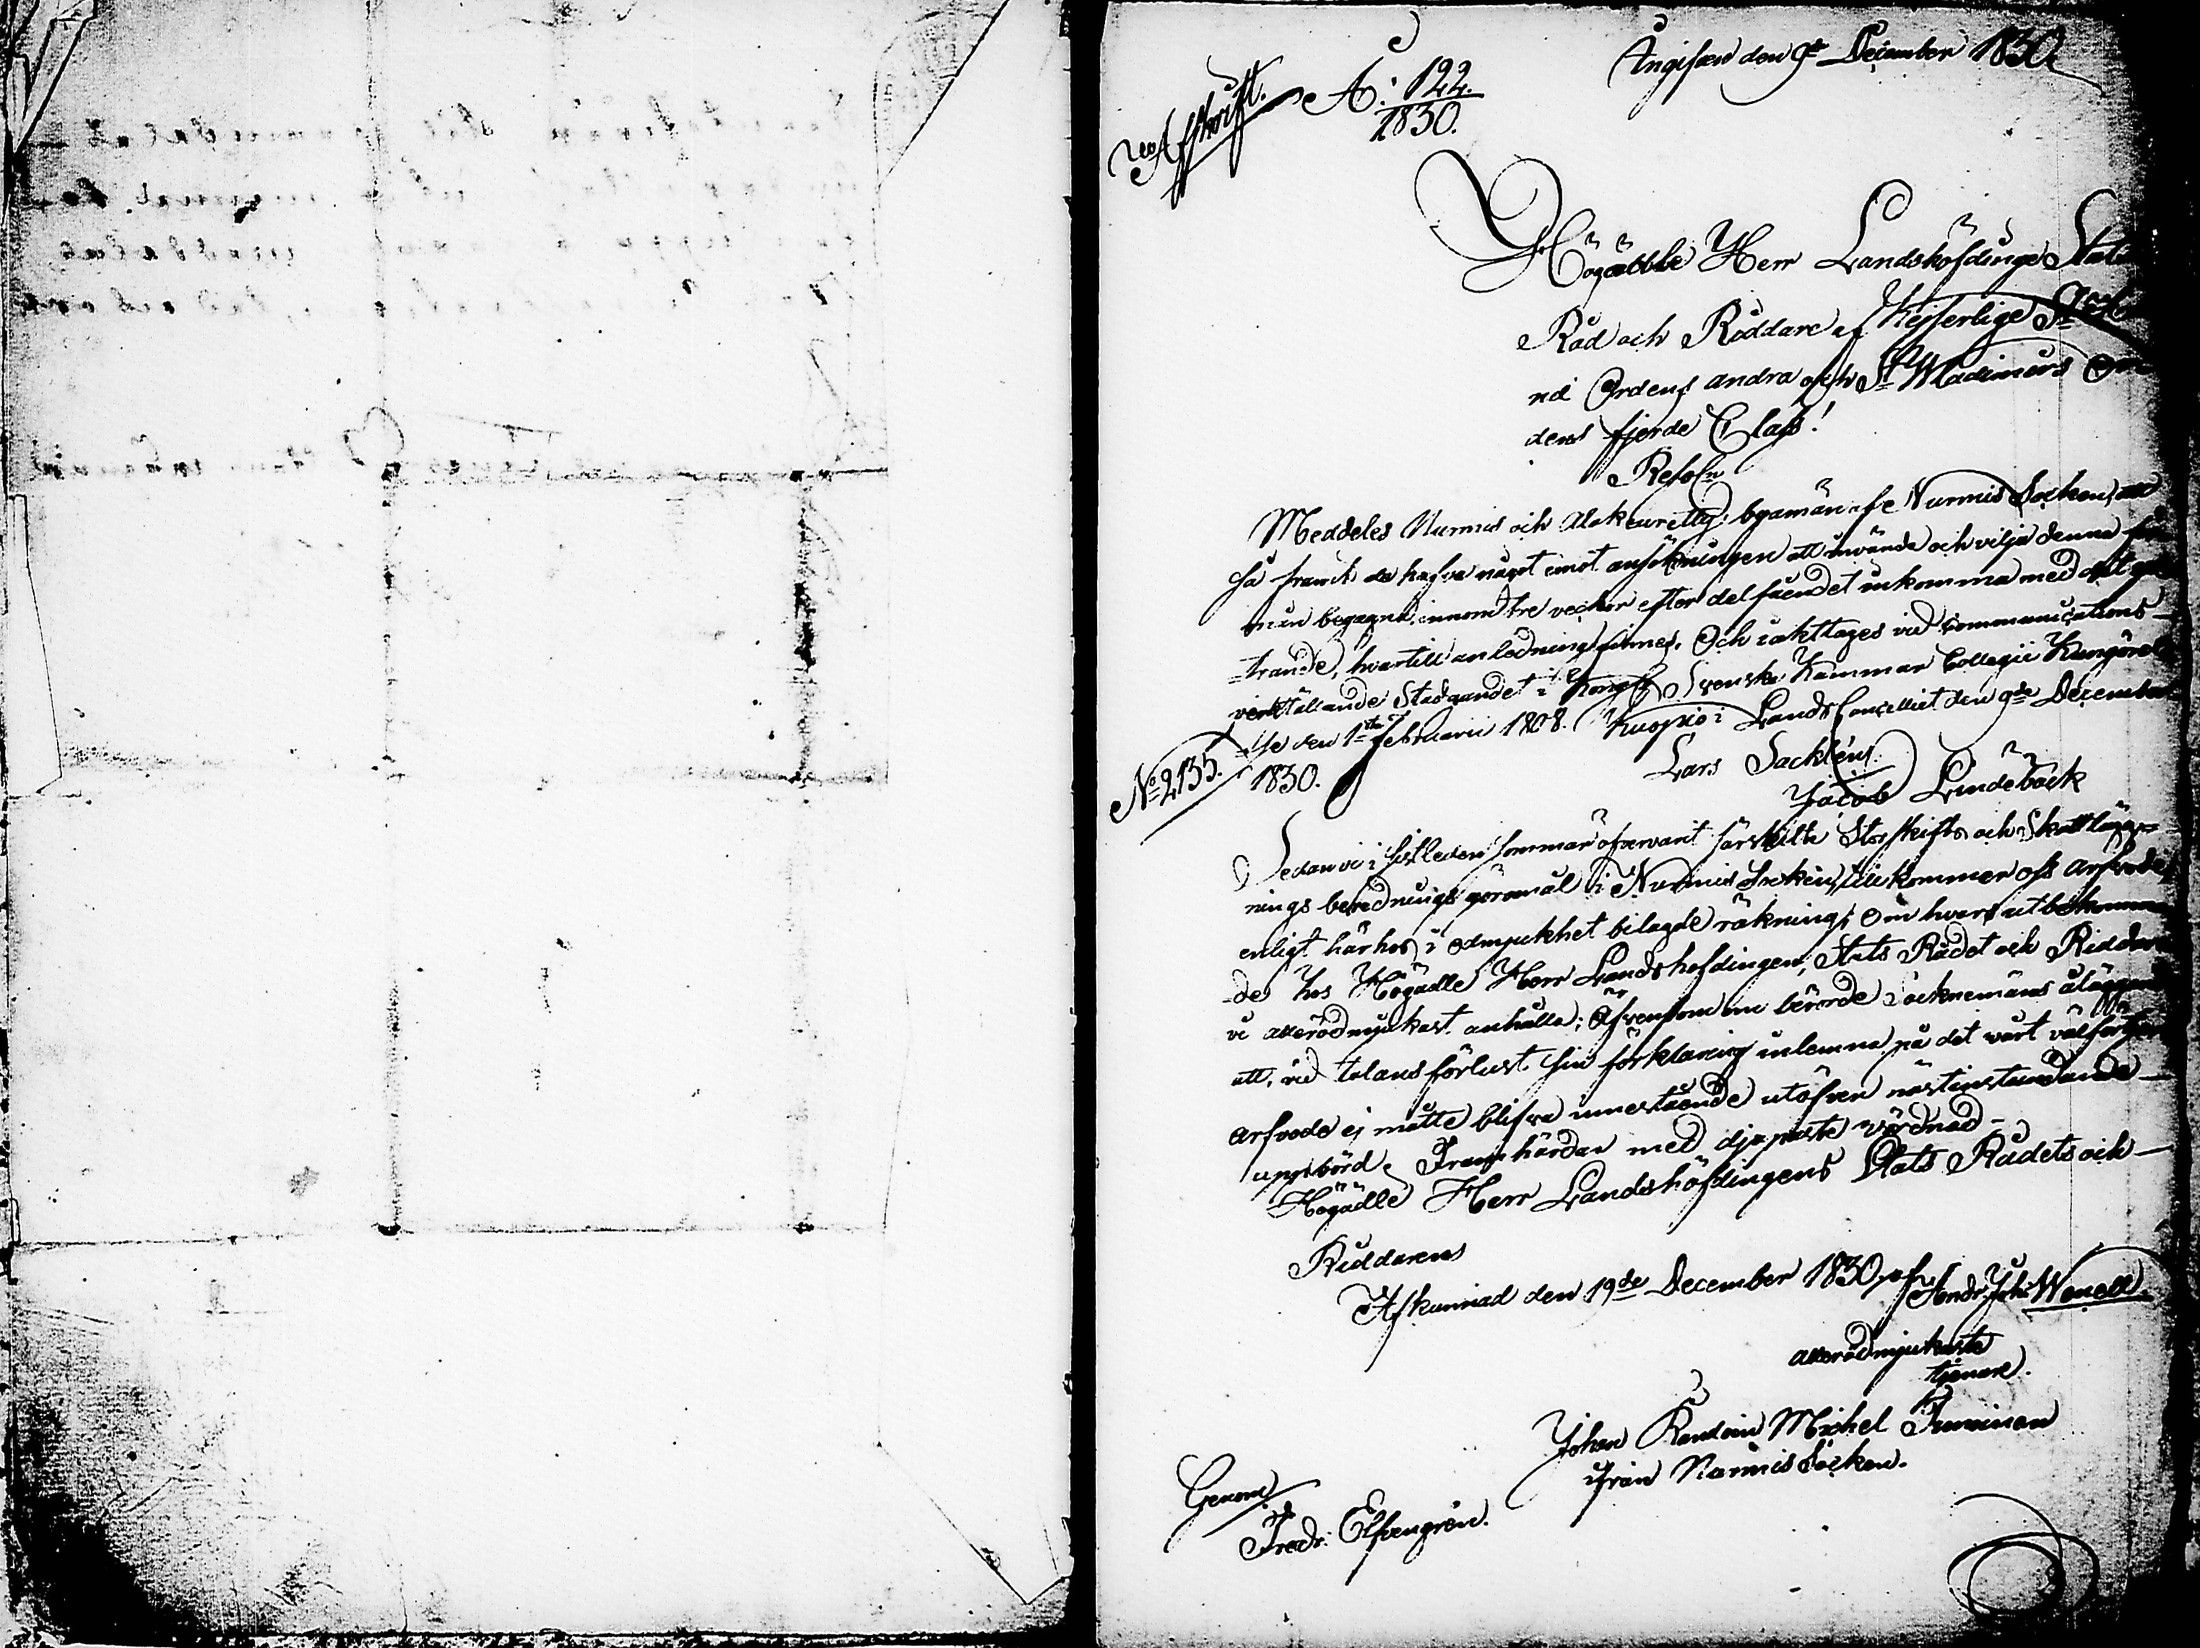 Afskrift.
A: 122.
1830.
Angifven den 9de December 1830
Högädle Herr Landshöfdinge Stats
Råd och Riddare af Kejserlige St
nd Ordens andra och St Wladimirs Or
dens fjerde Class!
Resoln
Meddeles Nurmis och byamän af Nurmis Socken, att
så framt de hafva något emot ansökningen att invända och vilja denna för
mån begagna, innom tre veckor efter delfåendet inkomma med det
trande, hvartill anledning finnes. Och iakttages vid communications
verkställande Stadgandet i Kongl. Svenska Kammar Collegii Kungörel
se den 1sta Februarii 1808. Kuopio i Lands Cancelliet den 9de December
No 2,135.
1830.
Lars Sacklén.
Jacob Lindebäck
Sedan vi i sistleden sommar öfvervarit särskilta Storskiftes och Skattlägg-
nings berednings göromål i Nurmis Socken, tillkommer oss arfvode,
enligt härhos i ödmjukhet bilagde räkning; Om hvars utbekomman
de hos Högädle Herr Landshöfdingen, Stats Rådet och Riddaren
vi allerödmjukast anhålle; Äfvensom om berörde Socknemäns åläggande
att, vid talans förlust sin förklaring inlemna, på det wårt välförtjen
arfvode ej måtte blifva innestående utöfver nästinstundande
uppbörd. Framhärdar med djupaste vördnad
Högädle Herr Landshöfdingens Stats Rådets och
Riddarens
Afkunnad den 19de December 1830, af Andr. Joh. Wenell.
allerödmjukaste
tjenare.
Johan Michel
från Nurmis Socken.
Genom
Fredr: Elfvengren.